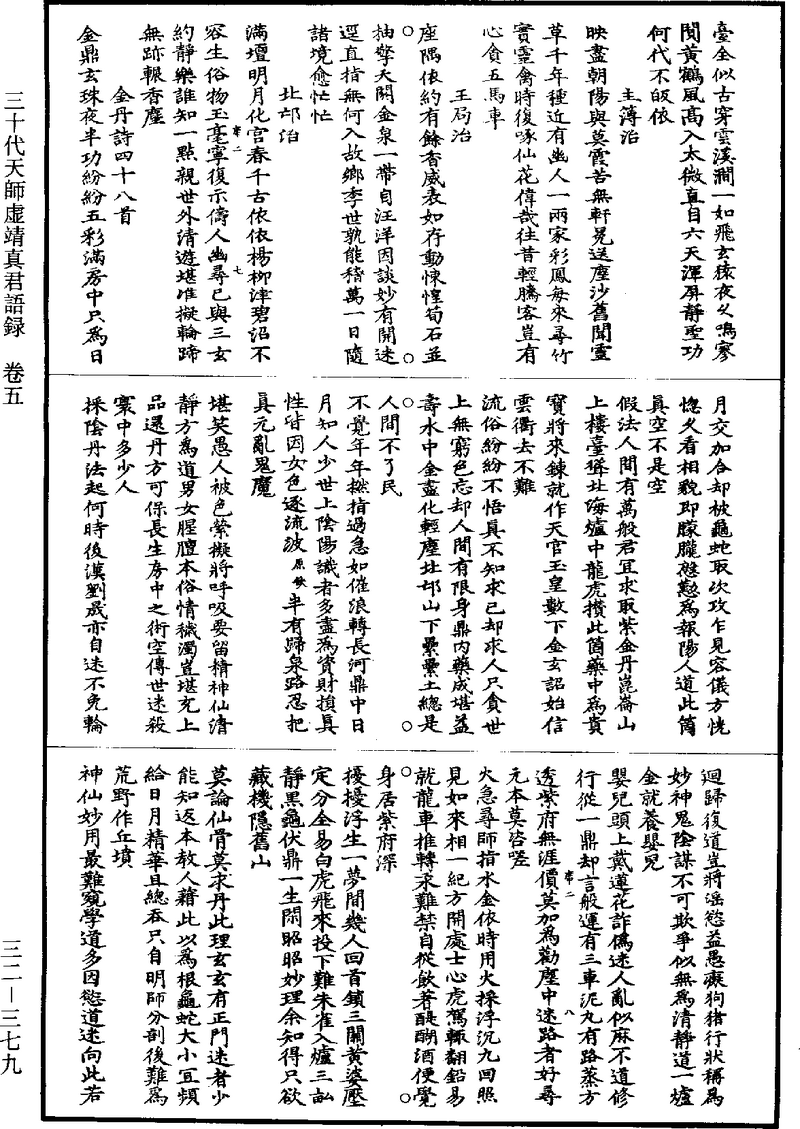 臺全似古穿雲溪澗一如飛玄猿夜久鳴寥
闃黃鶴風高入太微直自六天渾屏靜聖功
何代不皈依
主簿治
映盡朝陽與莫霞苦無軒冕送塵沙舊聞靈
草千年種近有幽人一兩家彩鳳每來尋竹
實靈禽時復啄仙花偉哉往昔輕騰客豈有
心貪五馬車
玉局治
座隅依約有餘香威表如存動悚惶筍石並
抽擎天闕金泉一帶自汪洋因談妙有開迷
逕直指無何入故鄉季世孰能稽萬一日隨
諸境愈忙忙
北邙治
滿壇明月化宮春千古依依楊柳津碧沼不
容生俗物玉毫寧復示儔人幽尋已與三女
約靜樂誰知一點親世外清遊堪准擬輪蹄
無跡輾香塵
金丹詩四十八首
金鼎玄珠夜半功紛紛五彩滿房中只為日
月交加合却被龜蛇取次攻乍見容儀方恍
惚久看相貌即朦朧慇懃為報陽人道此箇
真空不是空
假法人間有萬般君宜求取紫金丹崑崙山
上樓臺聳北海爐中龍虎攢此箇藥中為貴
寶將來鍊就作天官玉皇數下金玄詔始信
雲衢去不難
流俗紛紛不悟真不知求己却求人只貪世
上無窮色忘却人間有限身鼎內藥成堪益
壽水中金盡化輕塵北邙山下纍纍土總是
人間不了民
不覺年年撚指過急如催浪轉長河鼎中日
月知人少世上陰陽識者多盡為資財損真
性皆因女色逐流波原缺半有歸泉路忍把
真元亂鬼魔
堪笑愚人被色縈擬將呼吸要留精神仙清
靜方為道男女腥膻本俗情穢濁豈堪充上
品還丹方可保長生房中之術空傳世迷殺
寰中多少人
採陰丹法起何時後漢劉晟亦自迷不免輪
迴歸復道豈將淫慾益愚癡狗猪行狀稱為
妙神鬼陰謀不可欺爭似無為清靜道一爐
金就養嬰兒
嬰兒頭上戴蓮花詐偽迷人亂似麻不道修
行從一鼎却言般運有三車泥丸有路蒸方
透紫府無涯價莫加為勸塵中迷路者好尋
元本莫咨嗟
火急尋師指水金依時用火採浮沉九回照
見如來相一紀方開處士心虎駕轍翻鉛易
就龍車推轉汞難禁自從飲著醍醐酒便覺
身居紫府深
擾擾浮生一夢間幾人回首鎖三關黃婆壓
定分全易白虎飛來投下難朱雀入爐三畝
靜黑龜伏鼎一生閑昭昭妙理余知得只欲
藏機隱舊山
莫論仙骨莫求丹此理玄玄有正門迷者少
能知返本教人藉此以為根龜蛇大小宜頻
給日月精華且總吞只自明師分剖後難為
荒野作丘墳
神仙妙用最難窺學道多因慾道迷向此若
三十代天師虛靖真君語録 卷五
三二—三七九